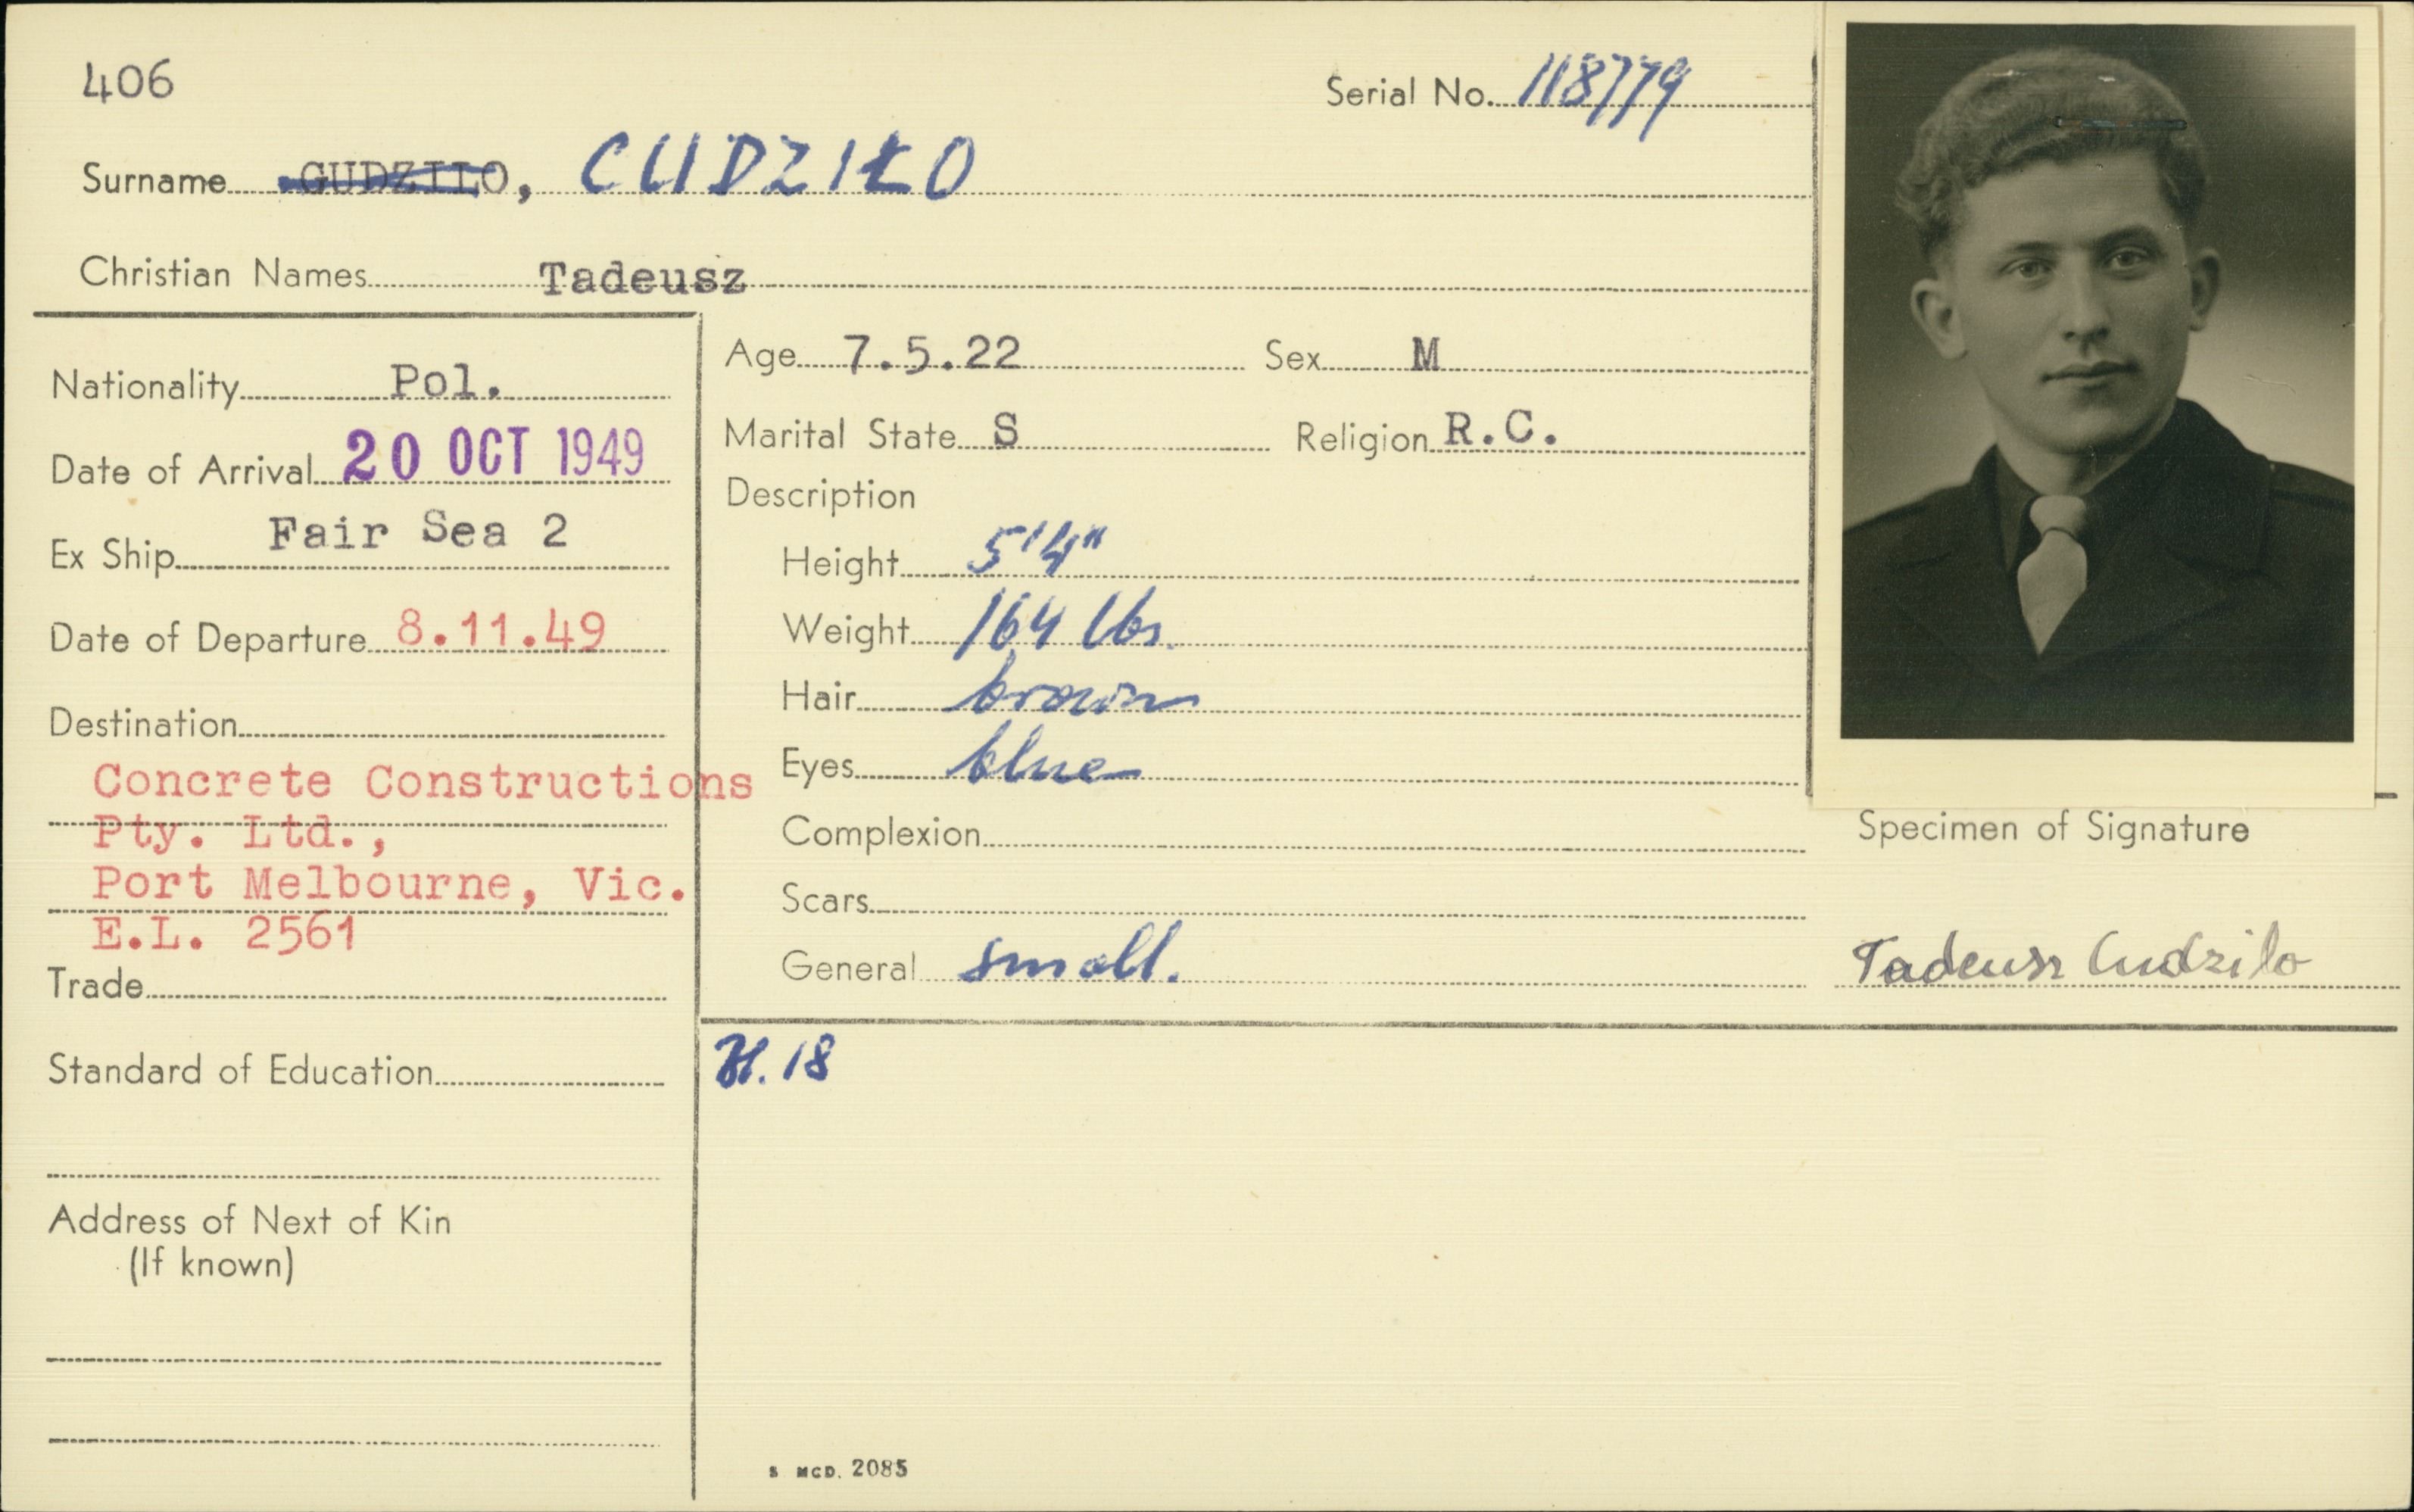 406
Serial No. 118779
Surname GUDZILO, CUDZIŁO
Christian Names Tadeusz
Nationality Pol.
Date of Arrival 20 OCT 1949
Ex Ship Fair Sea 2
Date of Departure 8.11.49
Destination
Concrete Constructions
Pty. Ltd.,
Port Melbourne, Vic.
E.L. 2561
Trade
Standard of Education
Address of Next of Kin
(If known)
Age 7.5.22 Sex M
Marital State S Religion R.C.
Description
Height 5'4"
Weight 164 lbs.
Hair brown
Eyes blue
Complexion
Scars
General small.
Specimen of Signature
Tadeusz Cudzilo
H. 18
S MCD. 2085